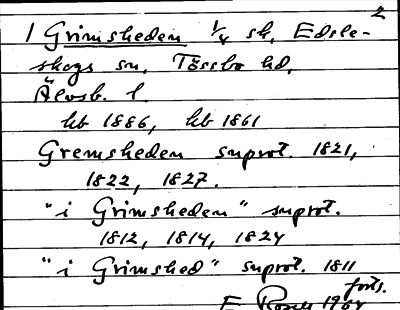 2
1 Grimsheden 1/4 sk, Edsle-
skogs sn, Tössbo hd,
Älvsb. l.
hb 1886, hb 1861
Gremsheden snprot. 1821,
1822, 1827.
"i Grimsheden" snprot.
1812, 1814, 1824
"i Grimshed" snprot. 1811
forts.
E 196